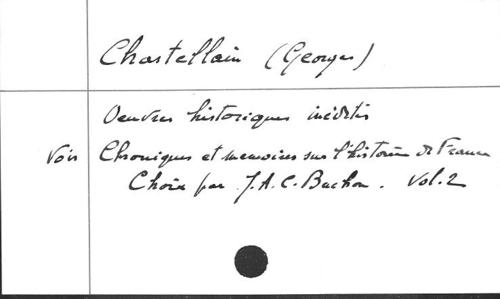 Chastellain (Georges)
Oeuvres historiques inédites
Voir Chroniques et memoires sur l'histoire de France
Choix par J.A.C. Buchon. Vol. 2